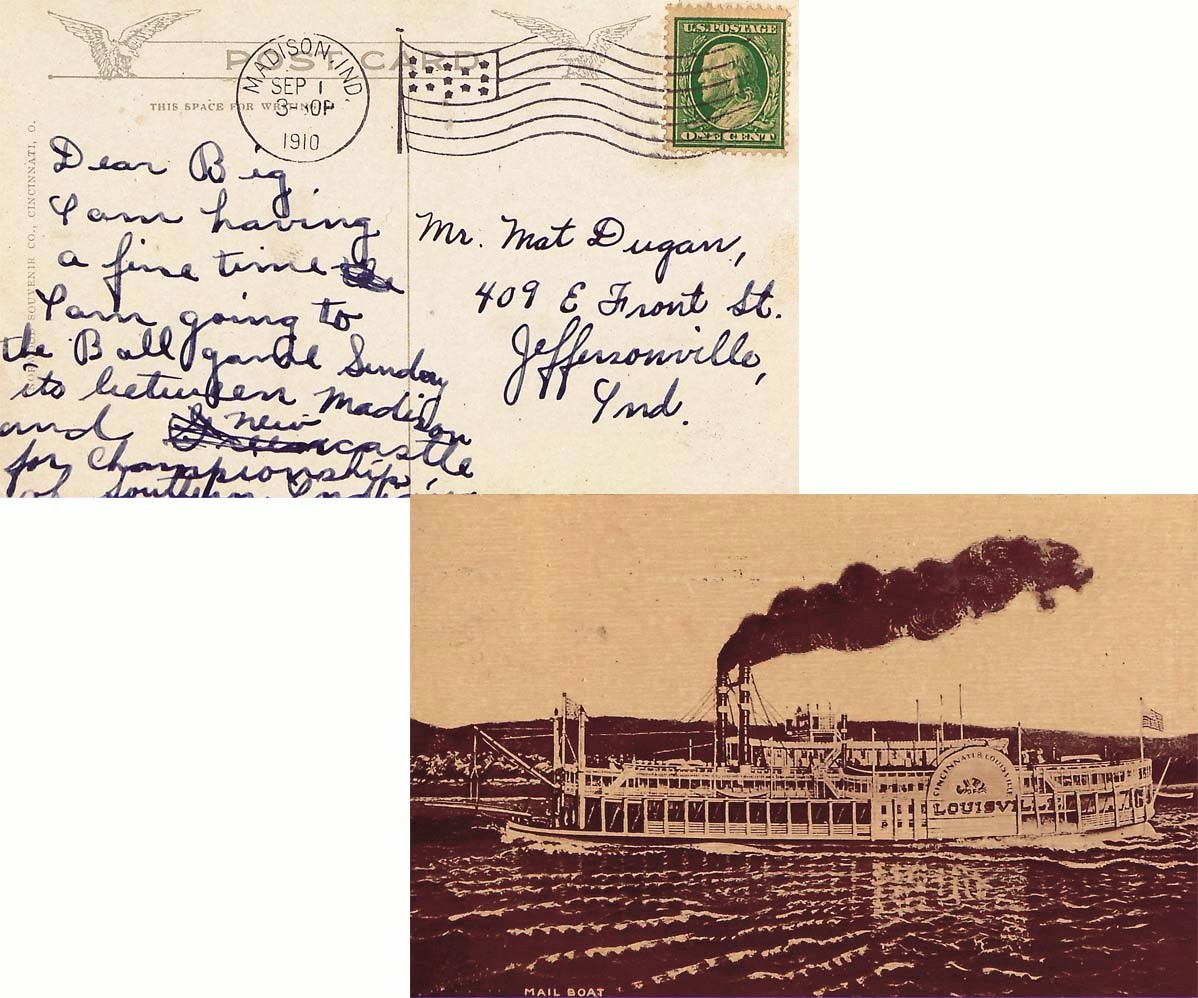 POST CARD
THIS SPACE FOR WRITING
MADISON, IND.
SEP 1
3-30P
1910
U.S. POSTAGE
ONE CENT
SOUVENIR CO., CINCINNATI, O.
Dear Big
I am having
a fine time
I am going to
the Ball gamel Sunday
its between Madison
and new castle
for Championship
of Southern Indiana
Mr. Mat Dugan,
409 E Front St.
Jeffersonville,
Ind.
CINCINNATI & LOUISVILLE
LOUISVILLE
MAIL BOAT